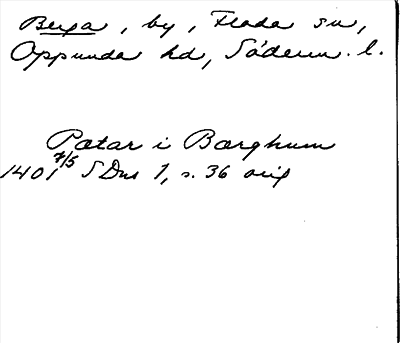 Berga, by, Floda sn,
Oppunda hd, Söderm. l.
Pætar i Bærghum
1401 7/5 SDns 1, s. 36 orig